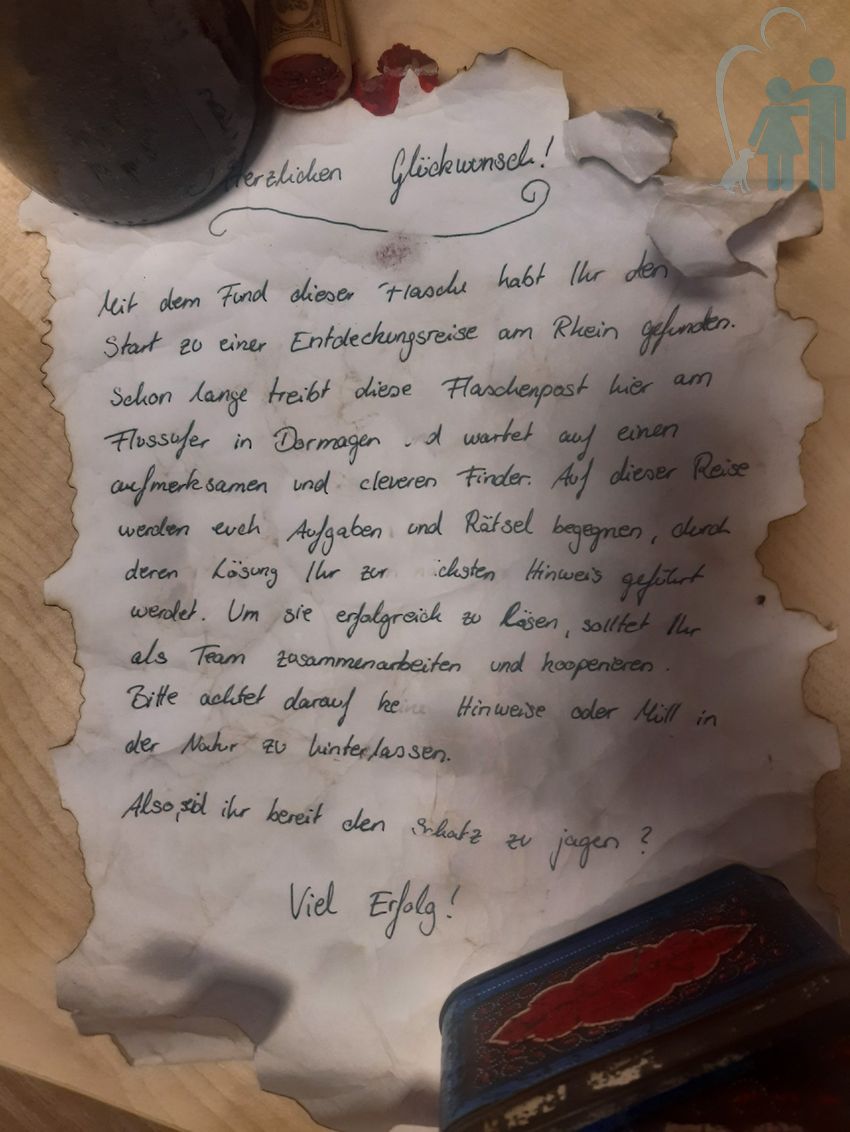 Herzlichen Glückwunsch!
Mit dem Fund dieser Flasche habt Ihr den
Start zu einer Entdeckungsreise am Rhein gefunden.
Schon lange treibt diese Flaschenpost hier am
Flussufer in Dormagen d wartet auf einen
aufmerksamen und cleveren Finder. Auf dieser Reise
werden euch Aufgaben und Rätsel begegnen, durch
deren Lösung Ihr zur chsten Hinweis geführt
werdet. Um sie erfolgreich zu lösen, solltet Ihr
als Team zusammenarbeiten und kooperieren.
Bitte achtet darauf keine Hinweise oder Müll in
der Natur zu hinterlassen.
Also, seid ihr bereit den Schatz zu jagen?
Viel Erfolg!